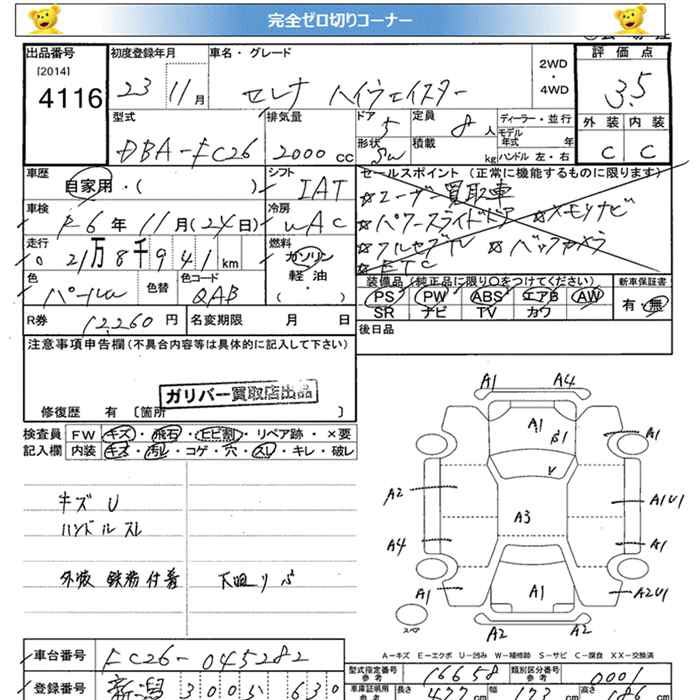 完全ゼロ切りコーナー
出品番号 初度登録年月 車名・グレード 評価点
[2014] 4116 23 11月 セレナ ハイウェイスター 2WD・4WD 3.5
型式 排気量 ドア 5 定員 8人 ディーラー・並行 外装 内装
DBA-FC26 2000cc 形状 SW 積載 kg モデル年式 年 ハンドル 左・右 C C
車歴 自家用・( ) シフト IAT セールスポイント(正常に機能するものに限ります)
☆ユーザー買取車
車検 R6年11月(24日) 冷房 WAC ☆パワースライドドア ☆メモリナビ
走行 021万8千941km 燃料 ガソリン 軽油 ( ・ ) ☆フルセグTV ☆バックカメラ
☆ETC
色 パール 色替 色コード QAB 装備品(純正品に限り○をつけてください) 新車保証書
PS PW ABS エアB AW 有・無
SR ナビ TV カワ
R券 12,260円 名変期限 月 日 後日品
注意事項申告欄(不具合内容等は具体的に記入して下さい)
ガリバー買取店出品
修復歴 有 〔箇所 〕
検査員 FW キズ・飛石・ヒビ割・リペア跡・×要
記入欄 内装 キズ・汚レ・コゲ・穴・スレ・キレ・破レ
キズU
ハンドルスレ
外板 鉄粉付着 下廻りサビ
A1 A4
A1 A1
B1
A2 A3 A1U1
A4 A1
A1 A1 A2U1
A2 A2
スペア
A-キズ E-エクボ U-凹み W-補修跡 S-サビ C-腐食 XX-交換済
車台番号 FC26-045282
型式指定番号 参考 16658 類別区分番号 参考 0001
登録番号 新潟 300 630
車庫証明用 参考 長さ 477cm 幅 173cm 高さ 186cm